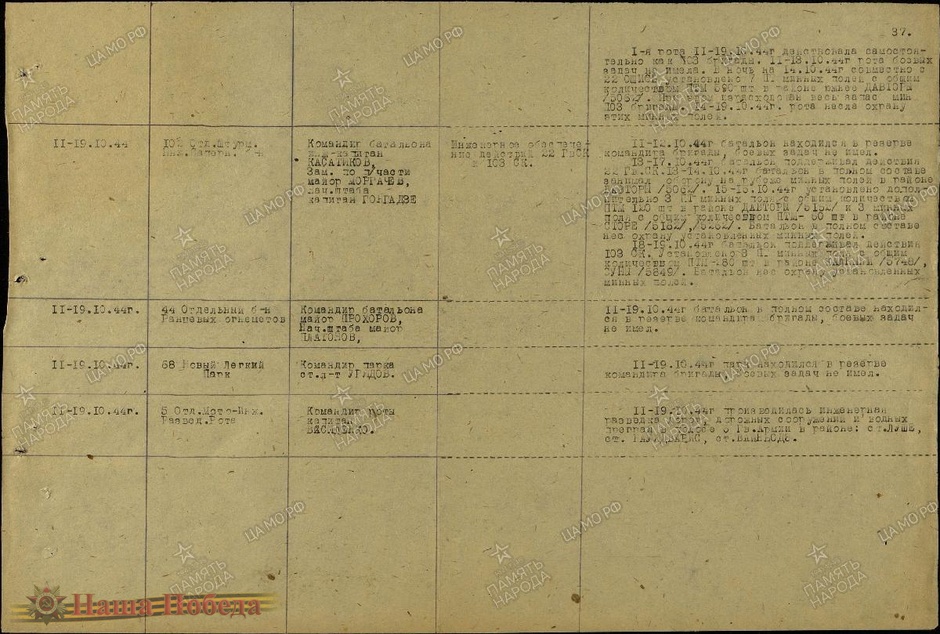 37.
1-я рота 11-19.10.44г действовала самостоя-
тельно как 103 бригады. 11-13.10.44г рота боевых
задач не имела. В ночь на 14.10.44г совместно с
22 установлено 7 П. минных полей с общим
количеством ПТМ 590 шт в районе южнее ДАВТОРЫ
/5082/. весь запас мин
103 бригады. 14-19.10.44г. рота несла охрану
этих минных полей.
11-19.10.44
Командир батальона
инж-капитан
КАСАТИКОВ,
Зам. по п/части
майор МОРГАЧЕВ,
нач.штаба
капитан
Инженерное обеспече-
ние действий 22 ГвСК
и 103 СК.
11-12.10.44г батальон находился в резерве
командира бригады, боевых задач не имел.
13-17.10.44г батальон поддерживал действия
22 Гв.СК.13-14.10.44г батальон в полном составе
занимал оборону на рубеже минных полей в районе
ДАВТОРЫ /5082/. 15-15.10.44г установлено допол-
нительно 3 ПТ минных поля с общим количеством
ПТМ 120 шт в районе ДАВТОРЫ /5182/ и 3 минных
поля с общим количеством ПТМ- 60 шт в районе
СТОРЕ /5182/,/5282/. Батальон в полном составе
нес охрану установленных минных полей.
18-19.10.44г батальон поддерживал действия
103 СК. Установлено 8 П. минных поля с общим
количеством ПТМ-385 шт в районе /5748/,
/5849/. Батальон нес охрану установленных
минных полей.
11-19.10.44г.
44 Отдельный б-н
Ранцевых огнеметов
Командир батальона
майор ПРОХОРОВ,
Нач.штаба майор
ПЛАТОНОВ,
11-19.10.44г батальон в полном составе находил-
ся в резерве командира бригады, боевых задач
не имел.
11-19.10.44г.
68 Новый Легкий
Парк
Командир парка
ст.л-т
11-19.10.44г парк находился в резерве
командира бригады, боевых задач не имел.
11-19.10.44г.
5 Отд.Мото-Инж.
Развед.Рота
Командир роты
капитан
ВАСИЛЕНКО.
11-19.10.44г производилась инженерная
разведка дорог, дорожных сооружений и водных
преград в полосе 6 Гв.Армии в районе: ст.ЛУШЕ,
ст. ст.ВАЙНЕДЕ.
ПАМЯТЬ
НАРОДА
ЦАМО.РФ
Наша Победа